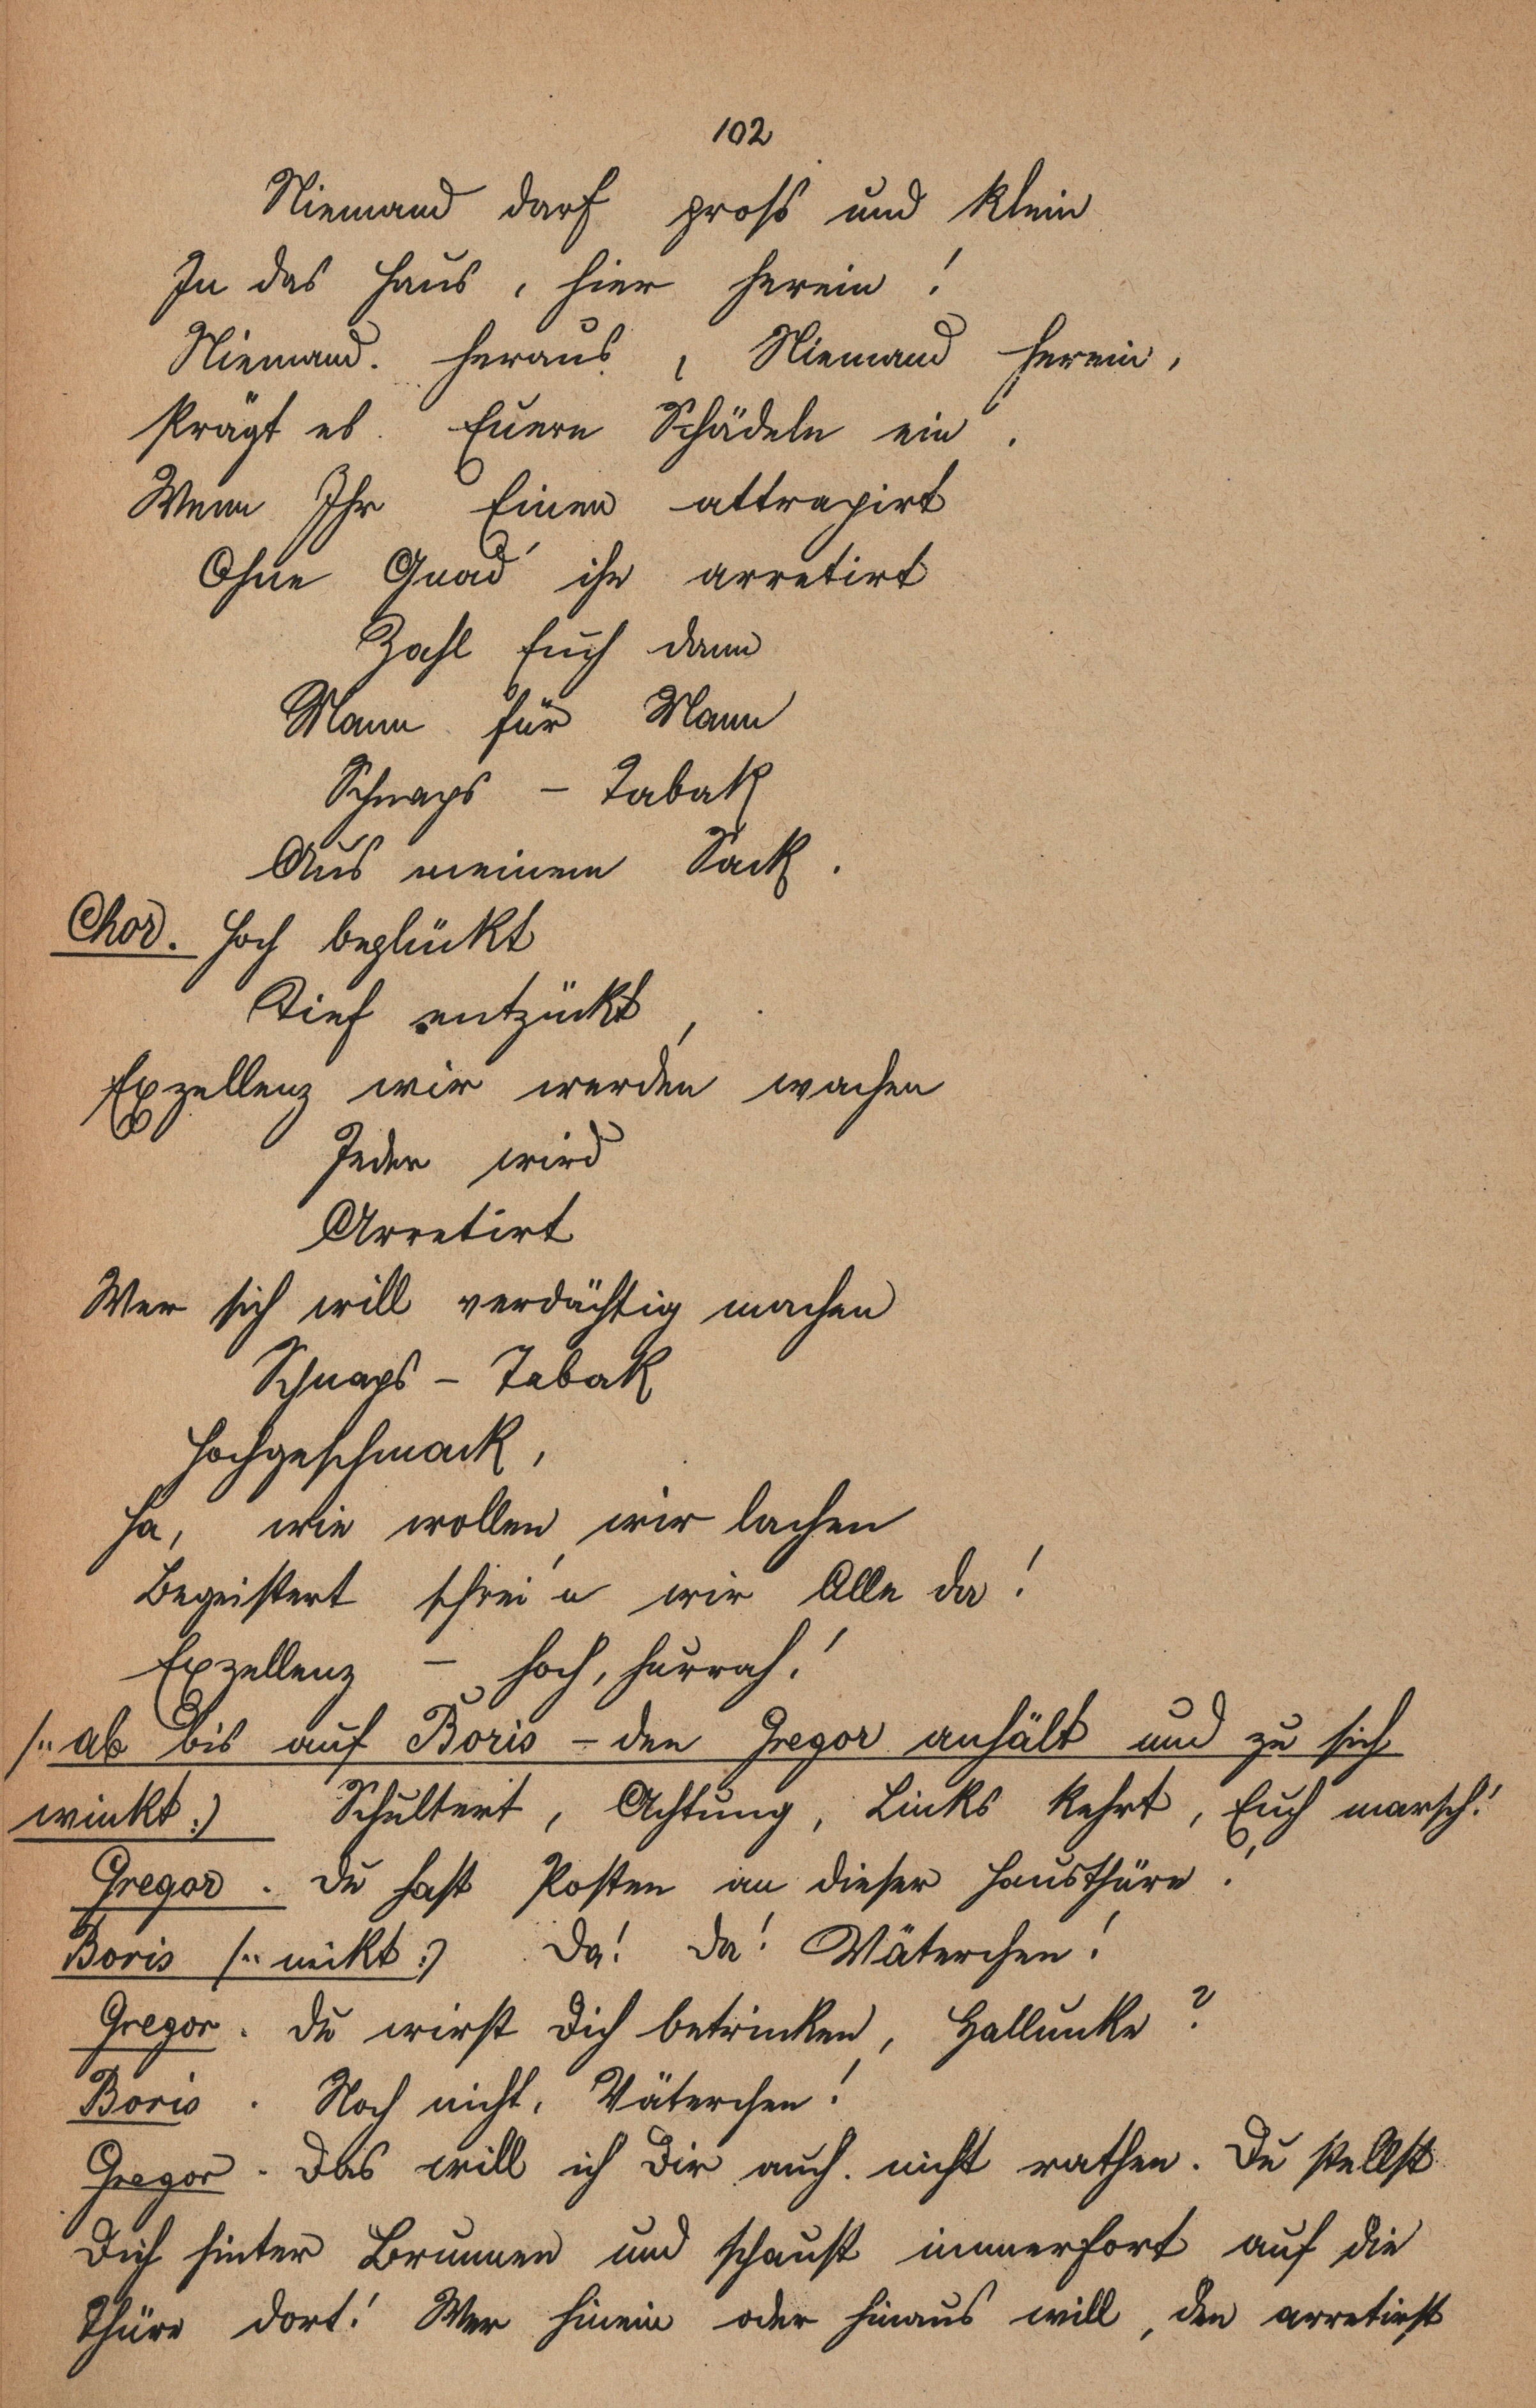 102
Niemand darf gross und klein
In das Haus, hier herein!
Niemand. heraus, Niemand herein,
Prägt es Euern Schädeln ein.
Wenn Ihr Einen attrapirt
Ohne Gnad' ihr arretirt
Zahl Euch dann
Mann für Mann
Schnaps – Tabak
Aus meinem Sack.
Chor. Hoch beglückt
Tief entzückt,
Exzellenz wir werden wachen
Jeder wird
Arretirt
Wer sich will verdächtig machen
Schnaps – Tabak
Hochgeschmack,
Ha, wie wollen wir lachen
Begeistert schrei'n wir Alle da!
Exzellenz – hoch, hurrah!
/: ab bis auf Boris – den Gregor anhält und zu sich
winkt :/ Schultert, Achtung, Links kehrt, Euch marsch!
Gregor. Du hast Posten an dieser Hausthüre!
Boris /: nickt :/ Da! Da! Väterchen!
Gregor. Du wirst Dich betrinken, Hallunke?
Boris. Noch nicht, Väterchen!
Gregor. Das will ich Dir auch nicht rathen. Du stellst
Dich hinter Brunnen und schaust immerfort auf die
Thüre dort! Wer hinein oder hinaus will, den arretirst